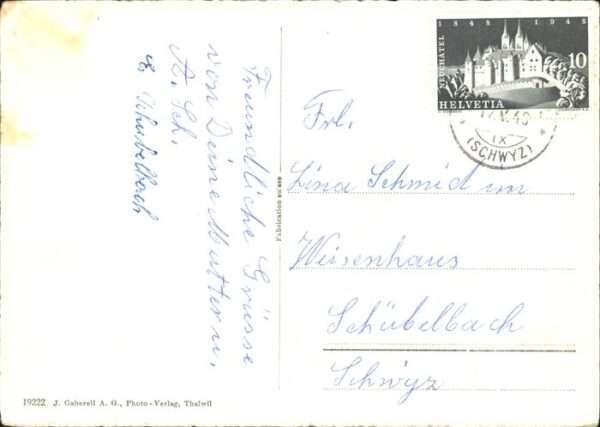 Freundliche Grüsse
von Deine Mutter u.
A. Sch.
Fabrication suisse
1848 1948
NEUCHATEL
10
HELVETIA
IX
(SCHWYZ)
Frl.
Lina Schmid im
Weisenhaus
Schübelbach
Schwyz
19222 J. Gaberell A. G., Photo-Verlag, Thalwil